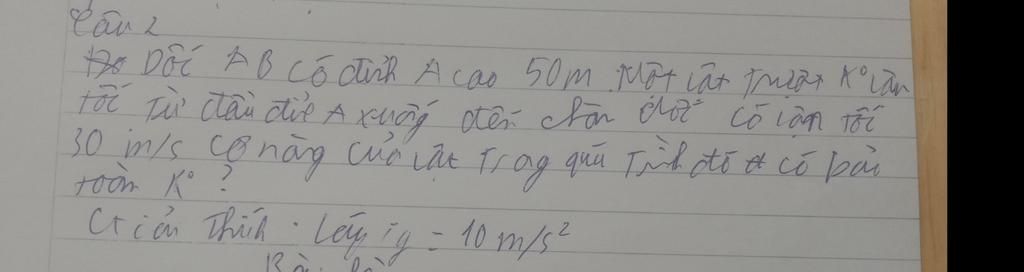 Câu 2
Dốc AB có đỉnh A cao 50m. Một vật trượt K° vận
tốc từ đầu đỉnh A xuống đến chân dốc có vận tốc
30 m/s Cơ năng của vật trong quá trình đó có bảo
toàn K° ?
Giải thích. Lấy g = 10 m/s²